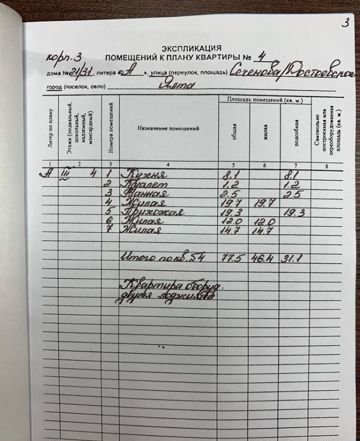 3
ЭКСПЛИКАЦИЯ
корп. 3 ПОМЕЩЕНИЙ К ПЛАНУ КВАРТИРЫ № 4
дома № 24/31, литера «А», улица (переулок, площадь) Сеченова/Достоевского
город (поселок, село) Ялта
Литер по плану Этаж (подвальный, цокольный, надземный, мансардный) Номера помещений Назначение помещений Площадь помещений (кв. м.) общая жилая подсобная Самовольно построенная или переоборудованная площадь (кв. м.)
1 2 3 4 5 6 7 8
А III 4 1 Кухня 8.1 8.1
2 Туалет 1.2 1.2
3 Ванная 2.5 2.5
4 Жилая 19.7 19.7
5 Прихожая 19.3 19.3
6 Жилая 12.0 12.0
7 Жилая 14.7 14.7
Итого по кв. 54 77.5 46.4 31.1
Квартира оборуд.
двумя лоджиями